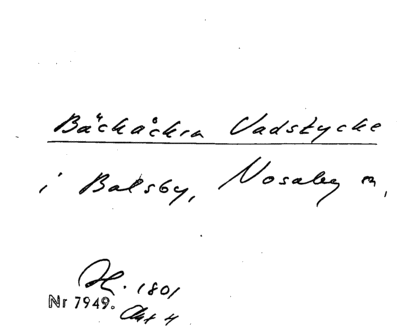 Bäckåckra Vadstycke
i Balsby, Nosaby sn,
1801
Nr 7949.
Akt 4